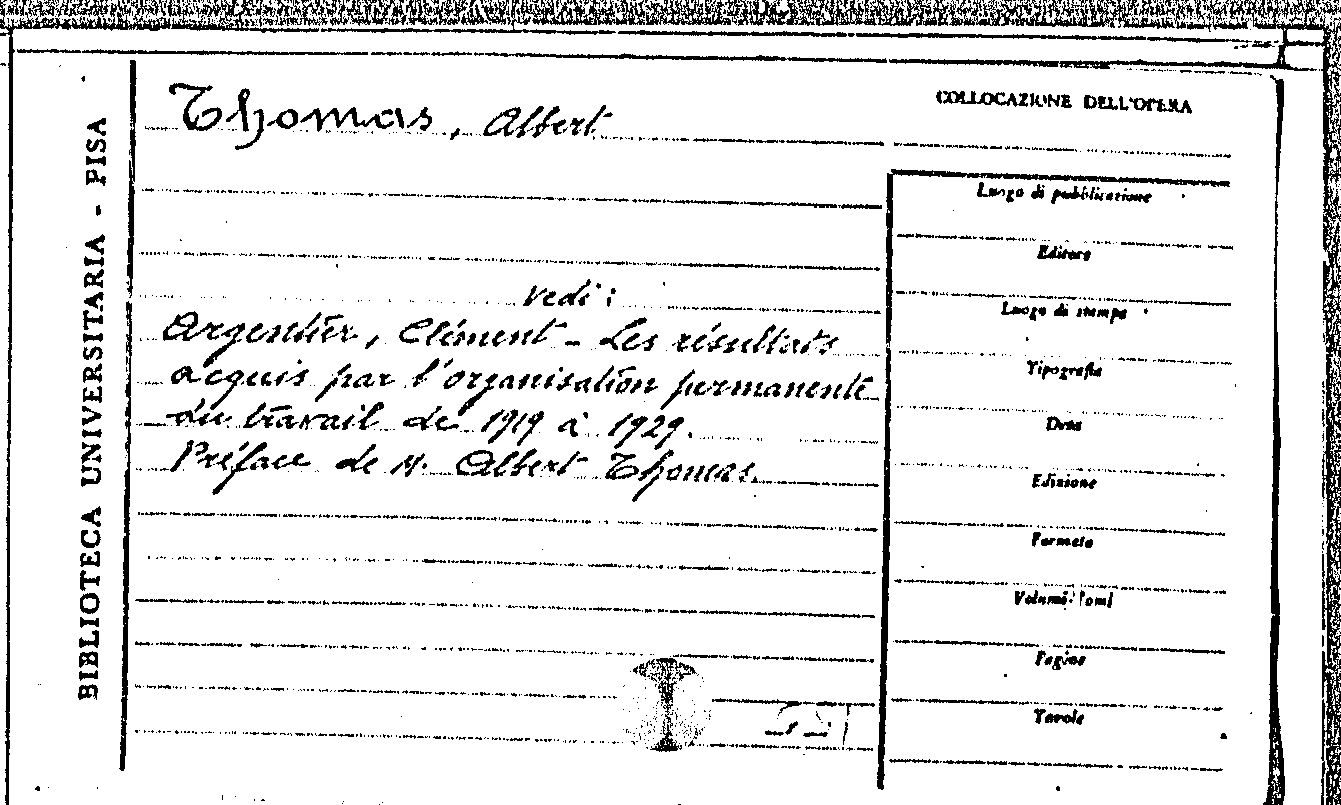 BIBLIOTECA UNIVERSITARIA - PISA
Thomas, Albert
COLLOCAZIONE DELL'OPERA
Luogo di pubblicazione
Editore
Luogo di stampa
Tipografia
Data
Edizione
Formato
Volumi-Tomi
Pagine
Tavole
Vedi:
Argentier, Clément - Les résultats
acquis par l'organisation permanente
du travail de 1919 à 1929.
Préface de M. Albert Thomas.